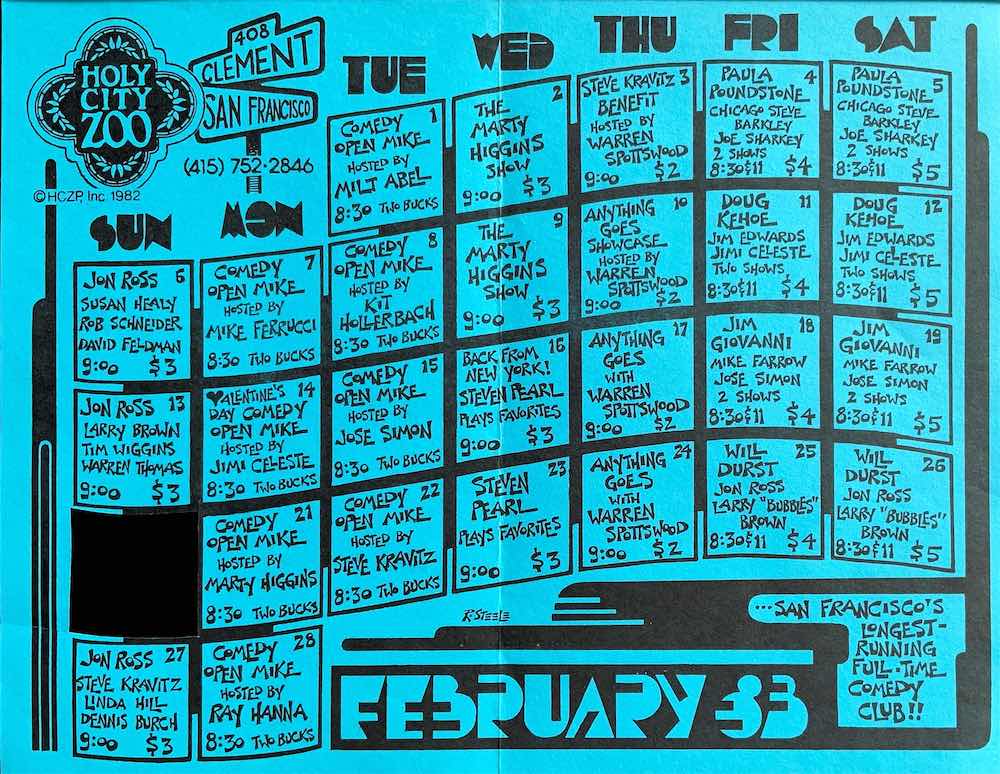 HOLY
CITY
ZOO
408
CLEMENT
SAN FRANCISCO
(415) 752-2846
©HCZP, Inc. 1982
TUE
WED
THU
FRI
SAT
SUN
MON
1
COMEDY
OPEN MIKE
HOSTED BY
MILT ABEL
8:30 TWO BUCKS
2
THE
MARTY
HIGGINS
SHOW
9:00 $3
STEVE KRAVITZ 3
BENEFIT
HOSTED BY
WARREN
SPOTTSWOOD
9:00 $2
PAULA 4
POUNDSTONE
CHICAGO STEVE
BARKLEY
JOE SHARKEY
2 SHOWS
8:30&11 $4
PAULA 5
POUNDSTONE
CHICAGO STEVE
BARKLEY
JOE SHARKEY
2 SHOWS
8:30&11 $5
JON ROSS 6
SUSAN HEALY
ROB SCHNEIDER
DAVID FELDMAN
9:00 $3
COMEDY 7
OPEN MIKE
HOSTED BY
MIKE FERRUCCI
8:30 TWO BUCKS
COMEDY 8
OPEN MIKE
HOSTED BY
KIT
HOLLERBACH
8:30 TWO BUCKS
THE 9
MARTY
HIGGINS
SHOW
9:00 $3
ANYTHING 10
GOES
SHOWCASE
HOSTED BY
WARREN
SPOTTSWOOD
9:00 $2
DOUG 11
KEHOE
JIM EDWARDS
JIMI CELESTE
TWO SHOWS
8:30&11 $4
DOUG 12
KEHOE
JIM EDWARDS
JIMI CELESTE
TWO SHOWS
8:30&11 $5
JON ROSS 13
LARRY BROWN
TIM WIGGINS
WARREN THOMAS
9:00 $3
VALENTINE'S 14
DAY COMEDY
OPEN MIKE
HOSTED BY
JIMI CELESTE
8:30 TWO BUCKS
COMEDY 15
OPEN MIKE
HOSTED BY
JOSE SIMON
8:30 TWO BUCKS
BACK FROM 16
NEW YORK!
STEVEN PEARL
PLAYS FAVORITES
9:00 $3
ANYTHING 17
GOES
WITH
WARREN
SPOTTSWOOD
9:00 $2
JIM 18
GIOVANNI
MIKE FARROW
JOSE SIMON
2 SHOWS
8:30&11 $4
JIM 19
GIOVANNI
MIKE FARROW
JOSE SIMON
2 SHOWS
8:30&11 $5
COMEDY 21
OPEN MIKE
HOSTED BY
MARTY HIGGINS
8:30 TWO BUCKS
COMEDY 22
OPEN MIKE
HOSTED BY
STEVE KRAVITZ
8:30 TWO BUCKS
STEVEN 23
PEARL
PLAYS FAVORITES
9:00 $3
ANYTHING 24
GOES
WITH
WARREN
SPOTTSWOOD
9:00 $2
WILL 25
DURST
JON ROSS
LARRY "BUBBLES"
BROWN
8:30&11 $4
WILL 26
DURST
JON ROSS
LARRY "BUBBLES"
BROWN
8:30&11 $5
JON ROSS 27
STEVE KRAVITZ
LINDA HILL
DENNIS BURCH
9:00 $3
COMEDY 28
OPEN MIKE
HOSTED BY
RAY HANNA
8:30 TWO BUCKS
R·STEELE
...SAN FRANCISCO'S
LONGEST-
RUNNING
FULL-TIME
COMEDY
CLUB!!
FEBRUARY 83